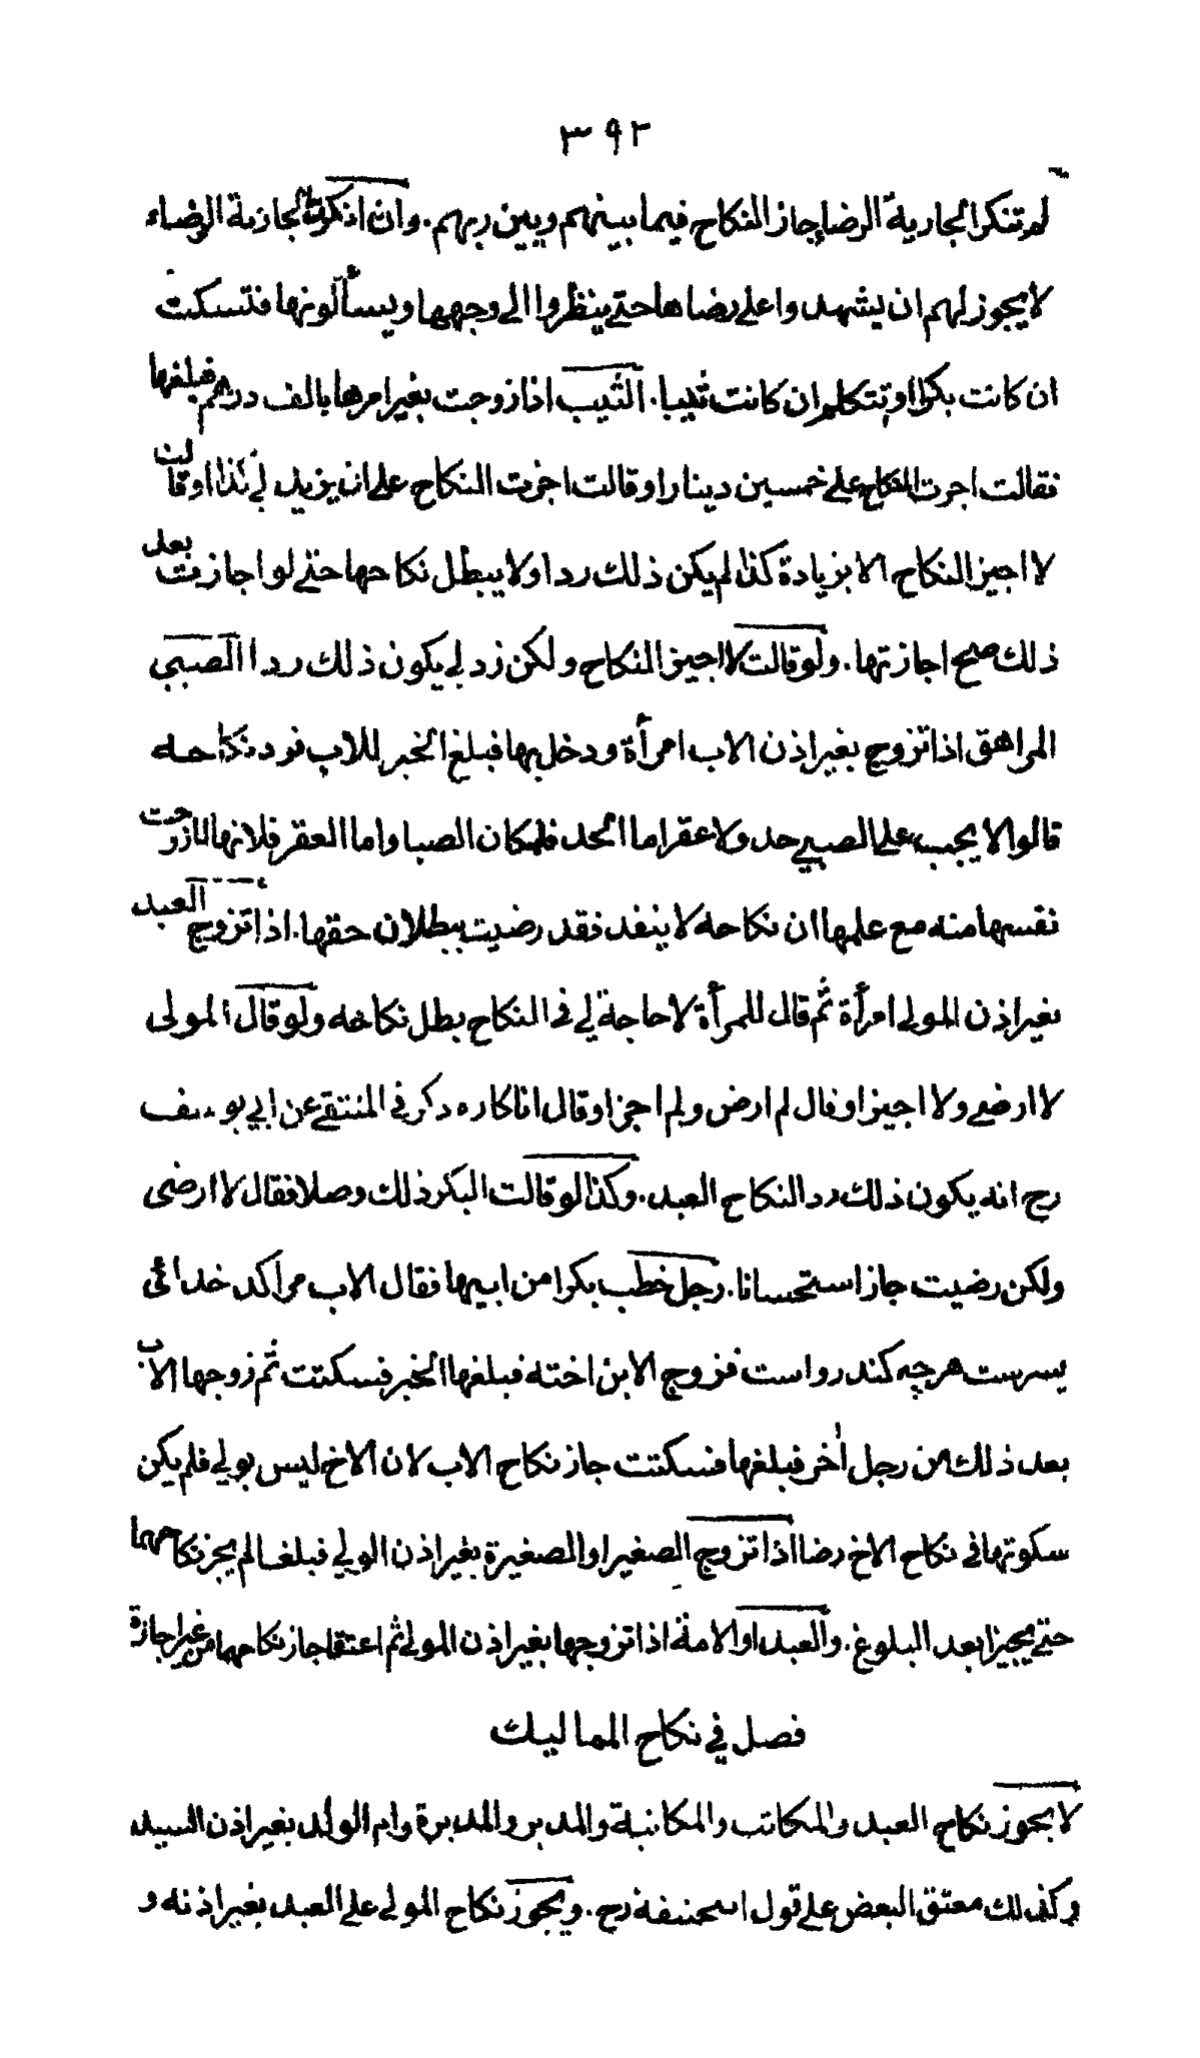 ٣٩٢
لم تنكر الجارية الرضا جاز النكاح فيما بينهم وبين ربهم . وان انكرت الجارية الرضاء
لا يجوز لهم ان يشهدوا على رضاها حتى ينظروا الى وجهها ويسألونها فتسكت
ان كانت بكرا او تتكلم ان كانت ثيبا . الثيب اذا زوجت بغير امرها بالف درهم فبلغها
فقالت اجزت النكاح على خمسين دينارا او قالت اجزت النكاح على ان يزيد لي كذا او قالت
لا اجيز النكاح الا بزيادة كذا لم يكن ذلك ردا ولا يبطل نكاحها حتى لو اجازت بعد
ذلك صح اجازتها . ولو قالت لا اجيز النكاح ولكن زد لي يكون ذلك ردا الصبي
المراهق اذا تزوج بغير اذن الاب امرأة ودخل بها فبلغ الخبر للاب فرد نكاحه
قالوا لا يجب على الصبي حد ولا عقر اما الحد فلمكان الصبا واما العقر فلانها لما زوجت
نفسها منه مع علمها ان نكاحه لا ينفد فقد رضيت ببطلان حقها . اذا تزوج العبد
بغير اذن المولى امرأة ثم قال للمرأة لا حاجة لي في النكاح بطل نكاحه ولو قال المولى
لا ارضى ولا اجيز او قال لم ارض ولم اجز او قال انا كاره ذكر في المنتقى عن ابي يوسف
رح انه يكون ذلك رد النكاح العبد . وكذا لو قالت البكر ذلك وصلا فقال لا ارضى
ولكن رضيت جاز استحسانا . رجل خطب بكرا من ابيها فقال الاب مرا كد خدائى
پسرست هرچه كند رواست فزوج الابن اخته فبلغها الخبر فسكتت ثم زوجها الاب
بعد ذلك من رجل أخر فبلغها فسكتت جاز نكاح الاب لان الاخ ليس بولي فلم يكن
سكوتها في نكاح الاخ رضا اذا تزوج الصغير او الصغيرة بغير اذن الولي فبلغا لم يجز نكاحهما
حتى يجيزا بعد البلوغ . والعبد او الامة اذا تزوجها بغير اذن المولى ثم اعتقا جاز نكاحهما من غير اجازة
فصل في نكاح المماليك
لا يجوز نكاح العبد والمكاتب والمكاتبة والمدبر والمدبرة وام الولد بغير اذن السيد
وكذلك معتق البعض على قول ابيحنيفة رح . ويجوز نكاح المولى على العبد بغير اذنه و